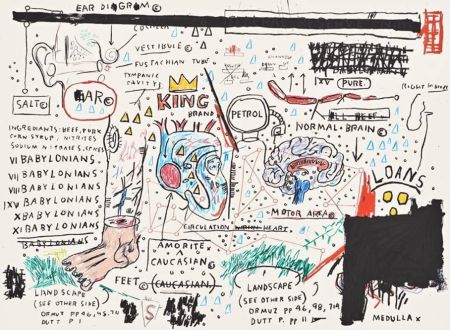 EAR DIAGRAM ©
COCHLEA
VESTIBULE ©
EUSTACHIAN TUBE
TYMPANIC
CAVITY
SALT ©
EAR ©
INGREDIENTS: BEEF, PORK
CORN SYRUP, NITRITES
SODIUM NITRATE, SPICES
VI BABYLONIANS.
VII BABYLONIANS
VIII BABYLONIANS
IXV BABYLONIANS
X BABYLONIANS
XI BABYLONIANS
BABYLONIANS
KING
BRAND
PETROL
XV PURE.
NORMAL BRAIN ©
LOANS
MOTOR AREA ©
CIRCULATION WITHIN HEART
AMORITE
CAUCASIAN ©
CAUCASIAN
FEET ©
LANDSCAPE
(SEE OTHER SIDE)
DUTT P 1
S
LANDSCAPE
(SEE OTHER SIDE)
ORMUZ PP 46, 98,
DUTT P. II
MEDULLA X